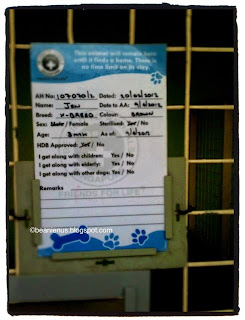 This animal will remain here
until it finds a home. There is
no time limit on its stay.
AH No: 10707012 Dated: 20/02/2012
Name: JEN Date to AA: 9/4/2012
Breed: X-BREED Colour: BROWN
Sex: Male / Female Sterilised: Yes / No
Age: 3 MTH As at: 9/4/2012
HDB Approved: Yes / No
I get along with children: Yes / No
I get along with elderly: Yes / No
I get along with other dogs: Yes / No
Remarks
FRIENDS FOR LIFE
©beanienus.blogspot.com